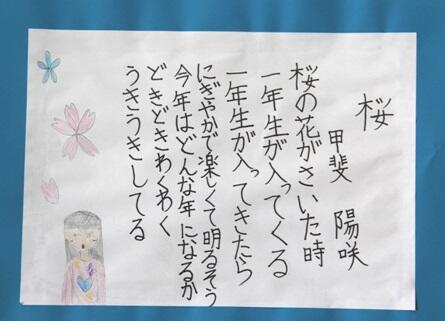 桜
甲斐 陽咲
桜の花がさいた時
一年生が入ってくる
一年生が入ってきたら
にぎやかで楽しくて明るそう
今年はどんな年になるか
どきどきわくわく
うきうきしてる